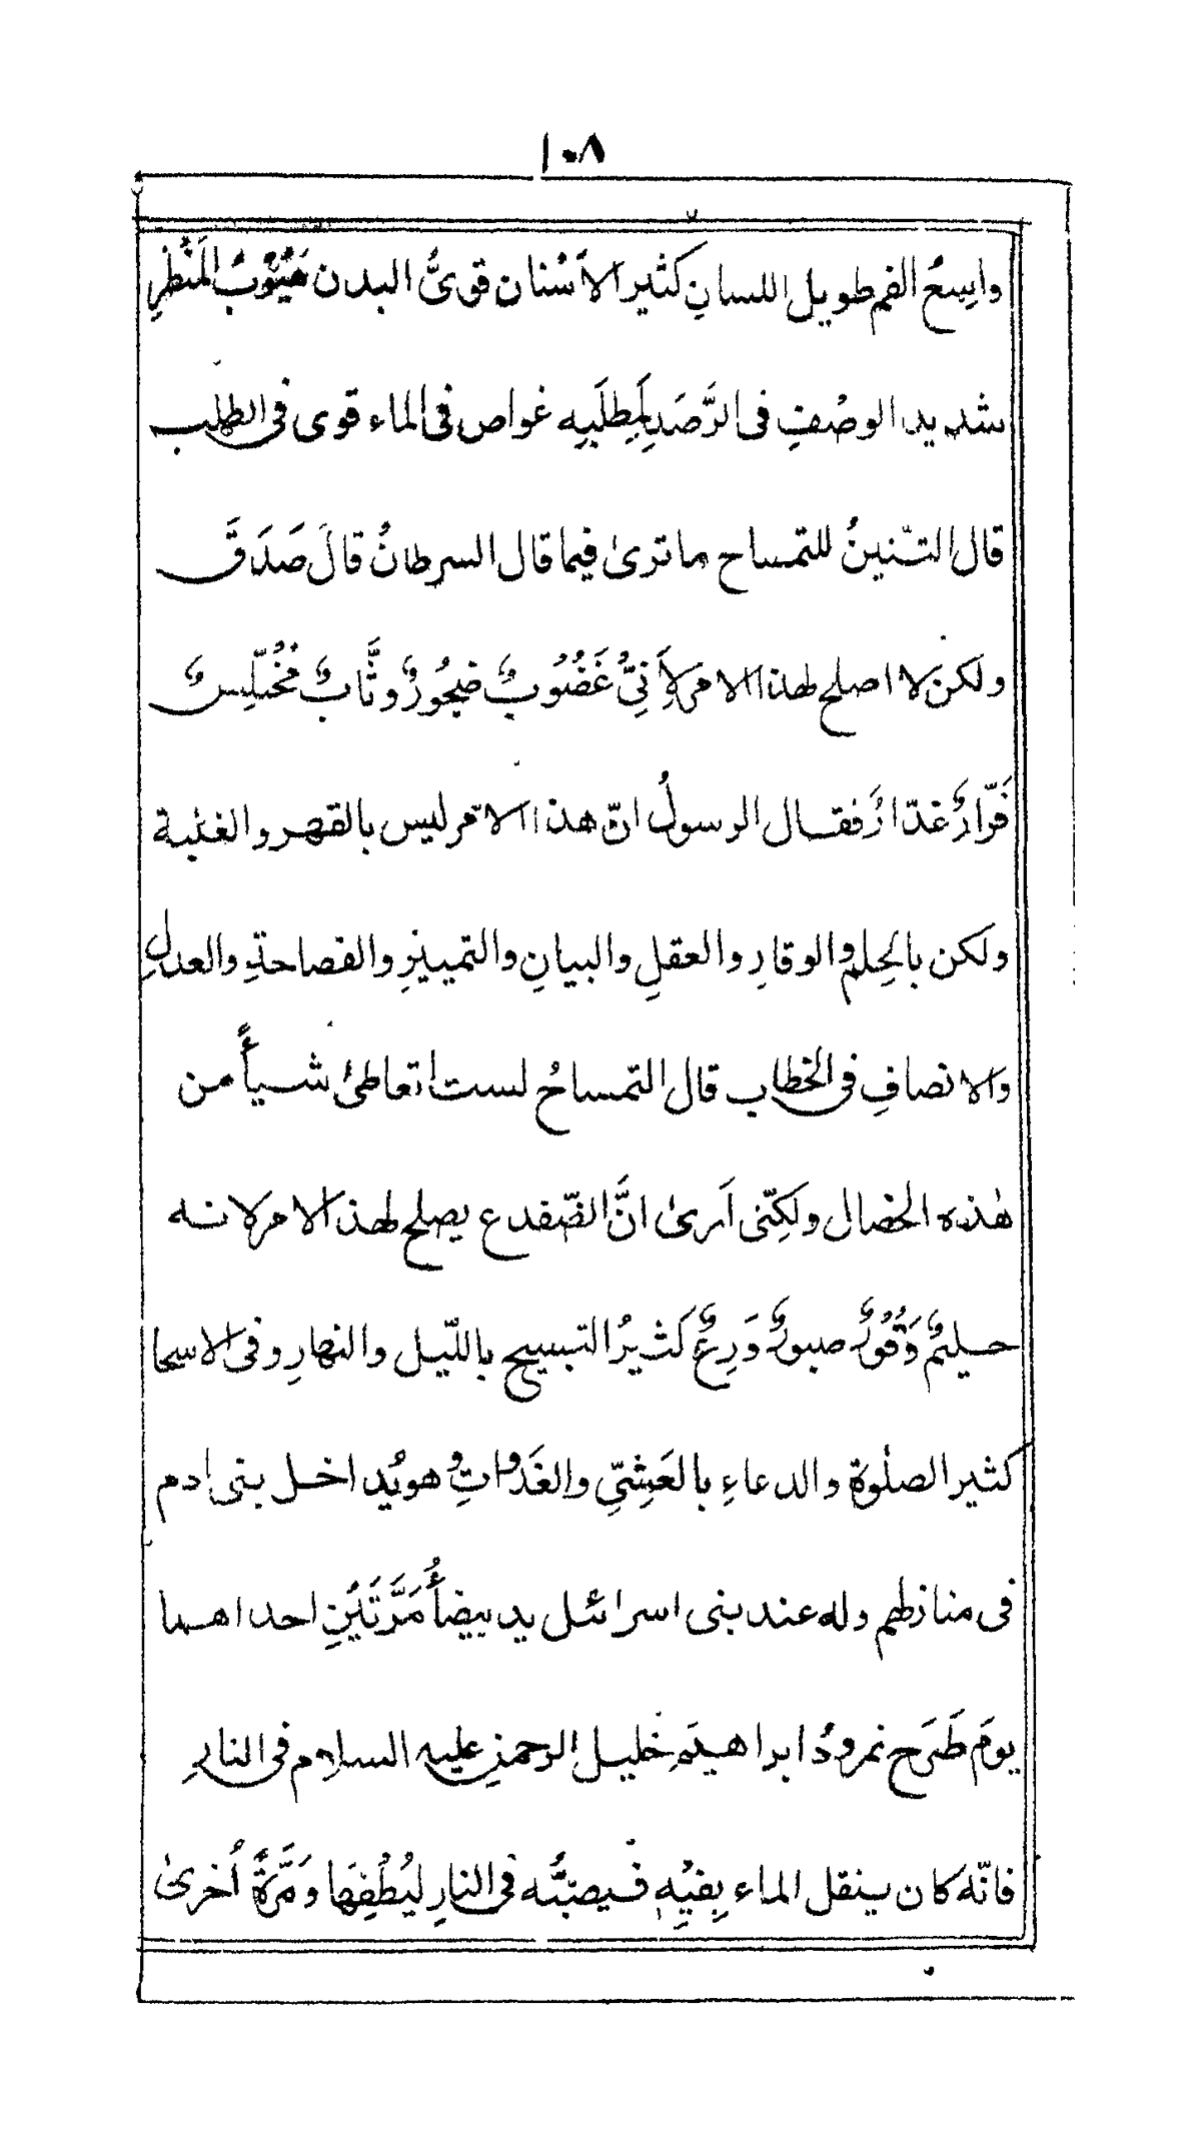 ١٠٨
واسِعُ الفم طويل اللسانِ كثير الاَسْنان قوىُّ البدن مَهْيُوْبُ المَنْظَرِ
شديد الوصْفِ فى الرَّصَدِ لِمَطلَبِه غواص فى الماء قوى فى الطلب
قال التّنينُ للتمساح ما ترىٰ فيما قال السرطانُ قالَ صَدَقَ
ولكن لا اصلح لهذا الامر لِاَنِّىْ غَضُوْبٌ ضجُورٌ وثَّابٌ مُخْتَلِسٌ
فَرّارٌ غدّارٌ فقال الرسولُ انّ هذا الامر ليس بالقهر والغلبة
ولكن بالحِلم والوقارِ والعقلِ والبيانِ والتمييزِ والفصاحةِ والعدلِ
والانصافِ فى الخطاب قال التمساحُ لست اتعاطىٰ شيأً من
هٰذه الخصال ولكِنّى اَرىٰ انَّ الضّفدع يصلح لهذ الامر لانه
حليمٌ وَقُوْرٌ صبورٌ وَرِعٌ كَثيرُ التسبيح باللّيل والنهارِ وفى الاسحا
كثير الصلٰوة والدعاءِ بالعَشِىِّ والغَدَواتِ وهو يُداخل بنى ادم
فى منازلهم وله عند بنى اسرائل يد بيضأُ مَرَّتَيْنِ احداهما
يومَ طَرَح نمرودُ ابراهيمَ خليل الرحمنِ عليه السلام فى النارِ
فانّه كان ينقل الماء بِفيْهِ فيصبُّه فى النارِ ليُطْفِهَا وَمَرَّةً اُخرىٰ